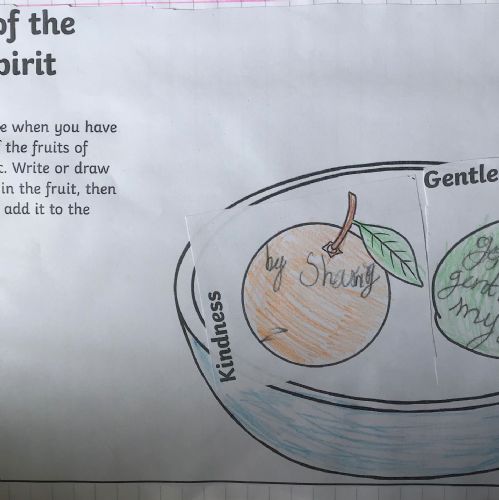 of the
pirit
e when you have
f the fruits of
t. Write or draw
in the fruit, then
add it to the
Kindness
by Sharing
Gentle
gent
my